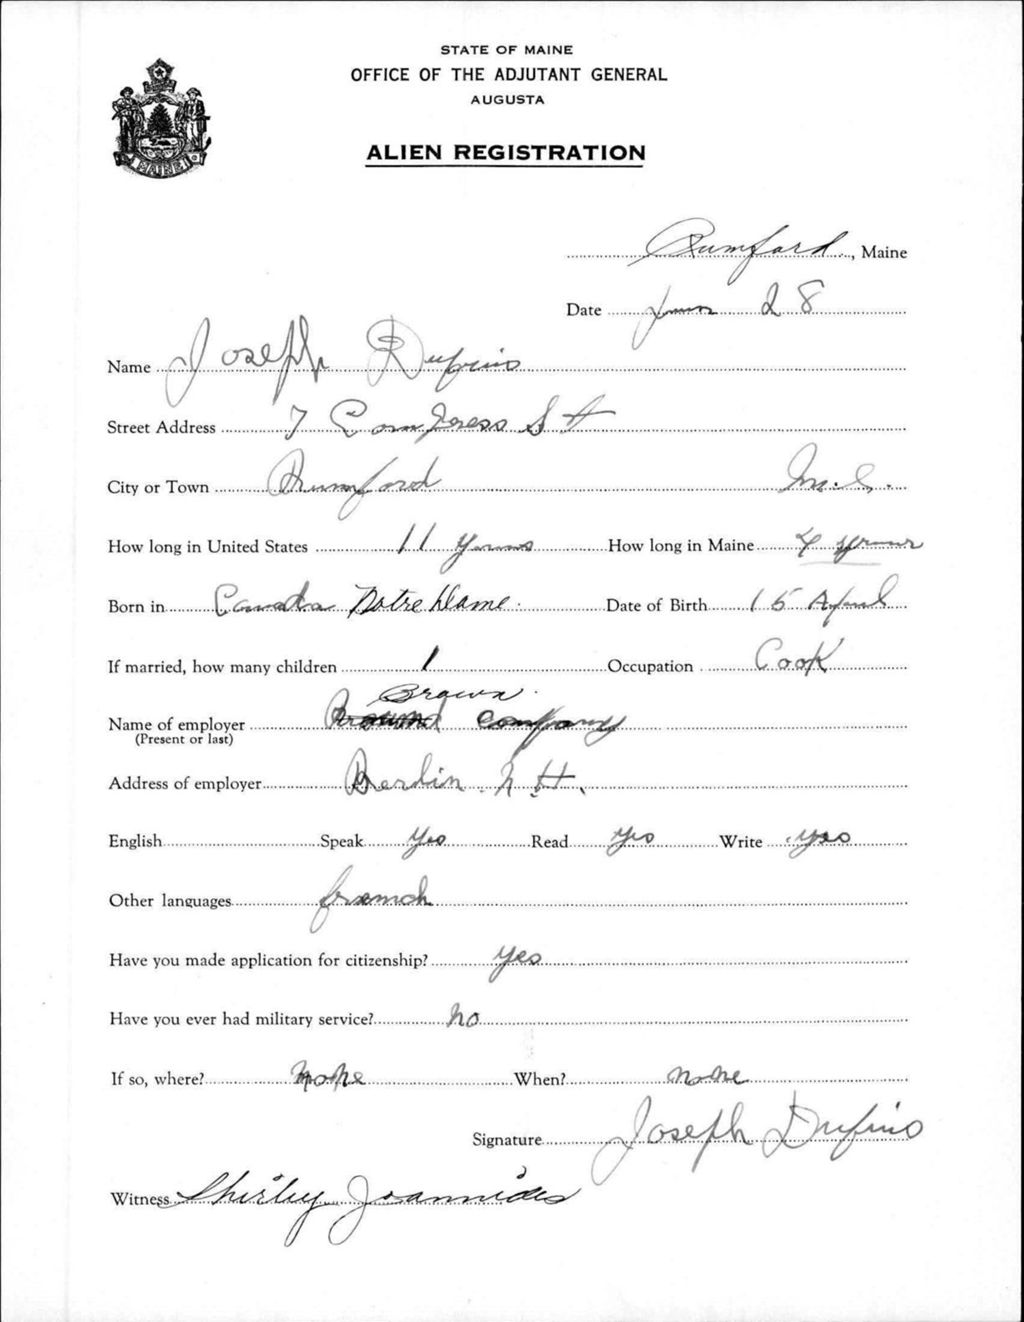 STATE OF MAINE
OFFICE OF THE ADJUTANT GENERAL
AUGUSTA
ALIEN REGISTRATION
MAINE
Rumford, Maine
Date June 28
Name Joseph
Street Address 7 St
City or Town Rumford Me.
How long in United States 11 years How long in Maine 4 years
Born in Canada Notre Dame. Date of Birth 15 April
If married, how many children 1 Occupation Cook
Brown
Name of employer company
(Present or last)
Address of employer Berlin. N.H.
English Speak Yes Read Yes Write yes
Other languages french
Have you made application for citizenship? Yes
Have you ever had military service? No
If so, where? None When? none
Signature Joseph
Witness Shirley Joannides